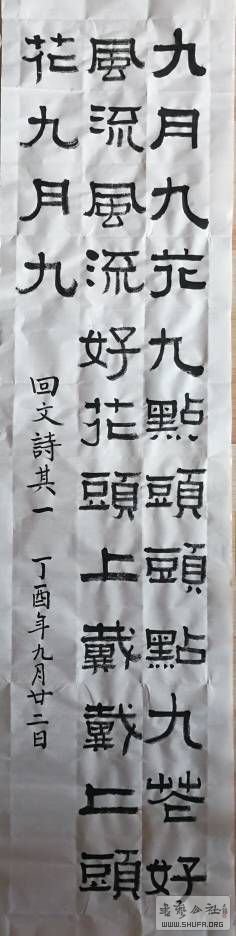 九月九花九點頭頭點九花好
風流風流好花頭上戴戴上頭
花九月九
回文詩其一 丁酉年九月廿二日
書藝公社
WWW.SHUFA.ORG